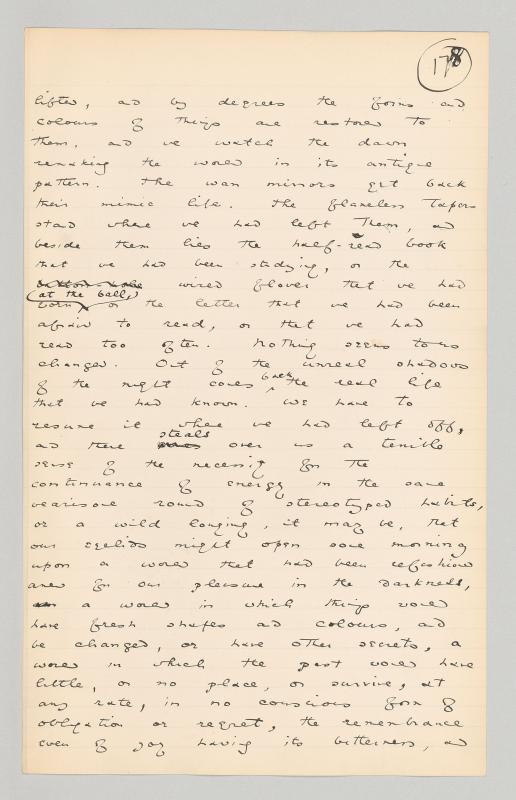 178
lifted, and by degrees the forms and
colours of things are restored to
them, and we watch the dawn
remaking the world in its antique
pattern. The wan mirrors get back
their mimic life. The flameless tapers
stand where we had left them, and
beside them lies the half-read book
that we had been studying, or the
button-hole wired flower that we had
(at the ball,)
worn, or the letter that we had been
afraid to read, or that we had
read too often. Nothing seems to us
changed. Out of the unreal shadows
of the night comes back the real life
that we had known. We have to
resume it where we had left off,
and there steals over us a terrible
sense of the necessity for the
continuance of energy in the same
wearisome round of stereotyped habits,
or a wild longing, it may be, that
our eyelids might open some morning
upon a world that had been refashioned
anew for our pleasure in the darkness,
a world in which things would
have fresh shapes and colours, and
be changed, or have other secrets, a
world in which the past would have
little, or no place, or survive, at
any rate, in no conscious form of
obligation or regret, the remembrance
even of joy having its bitterness, and